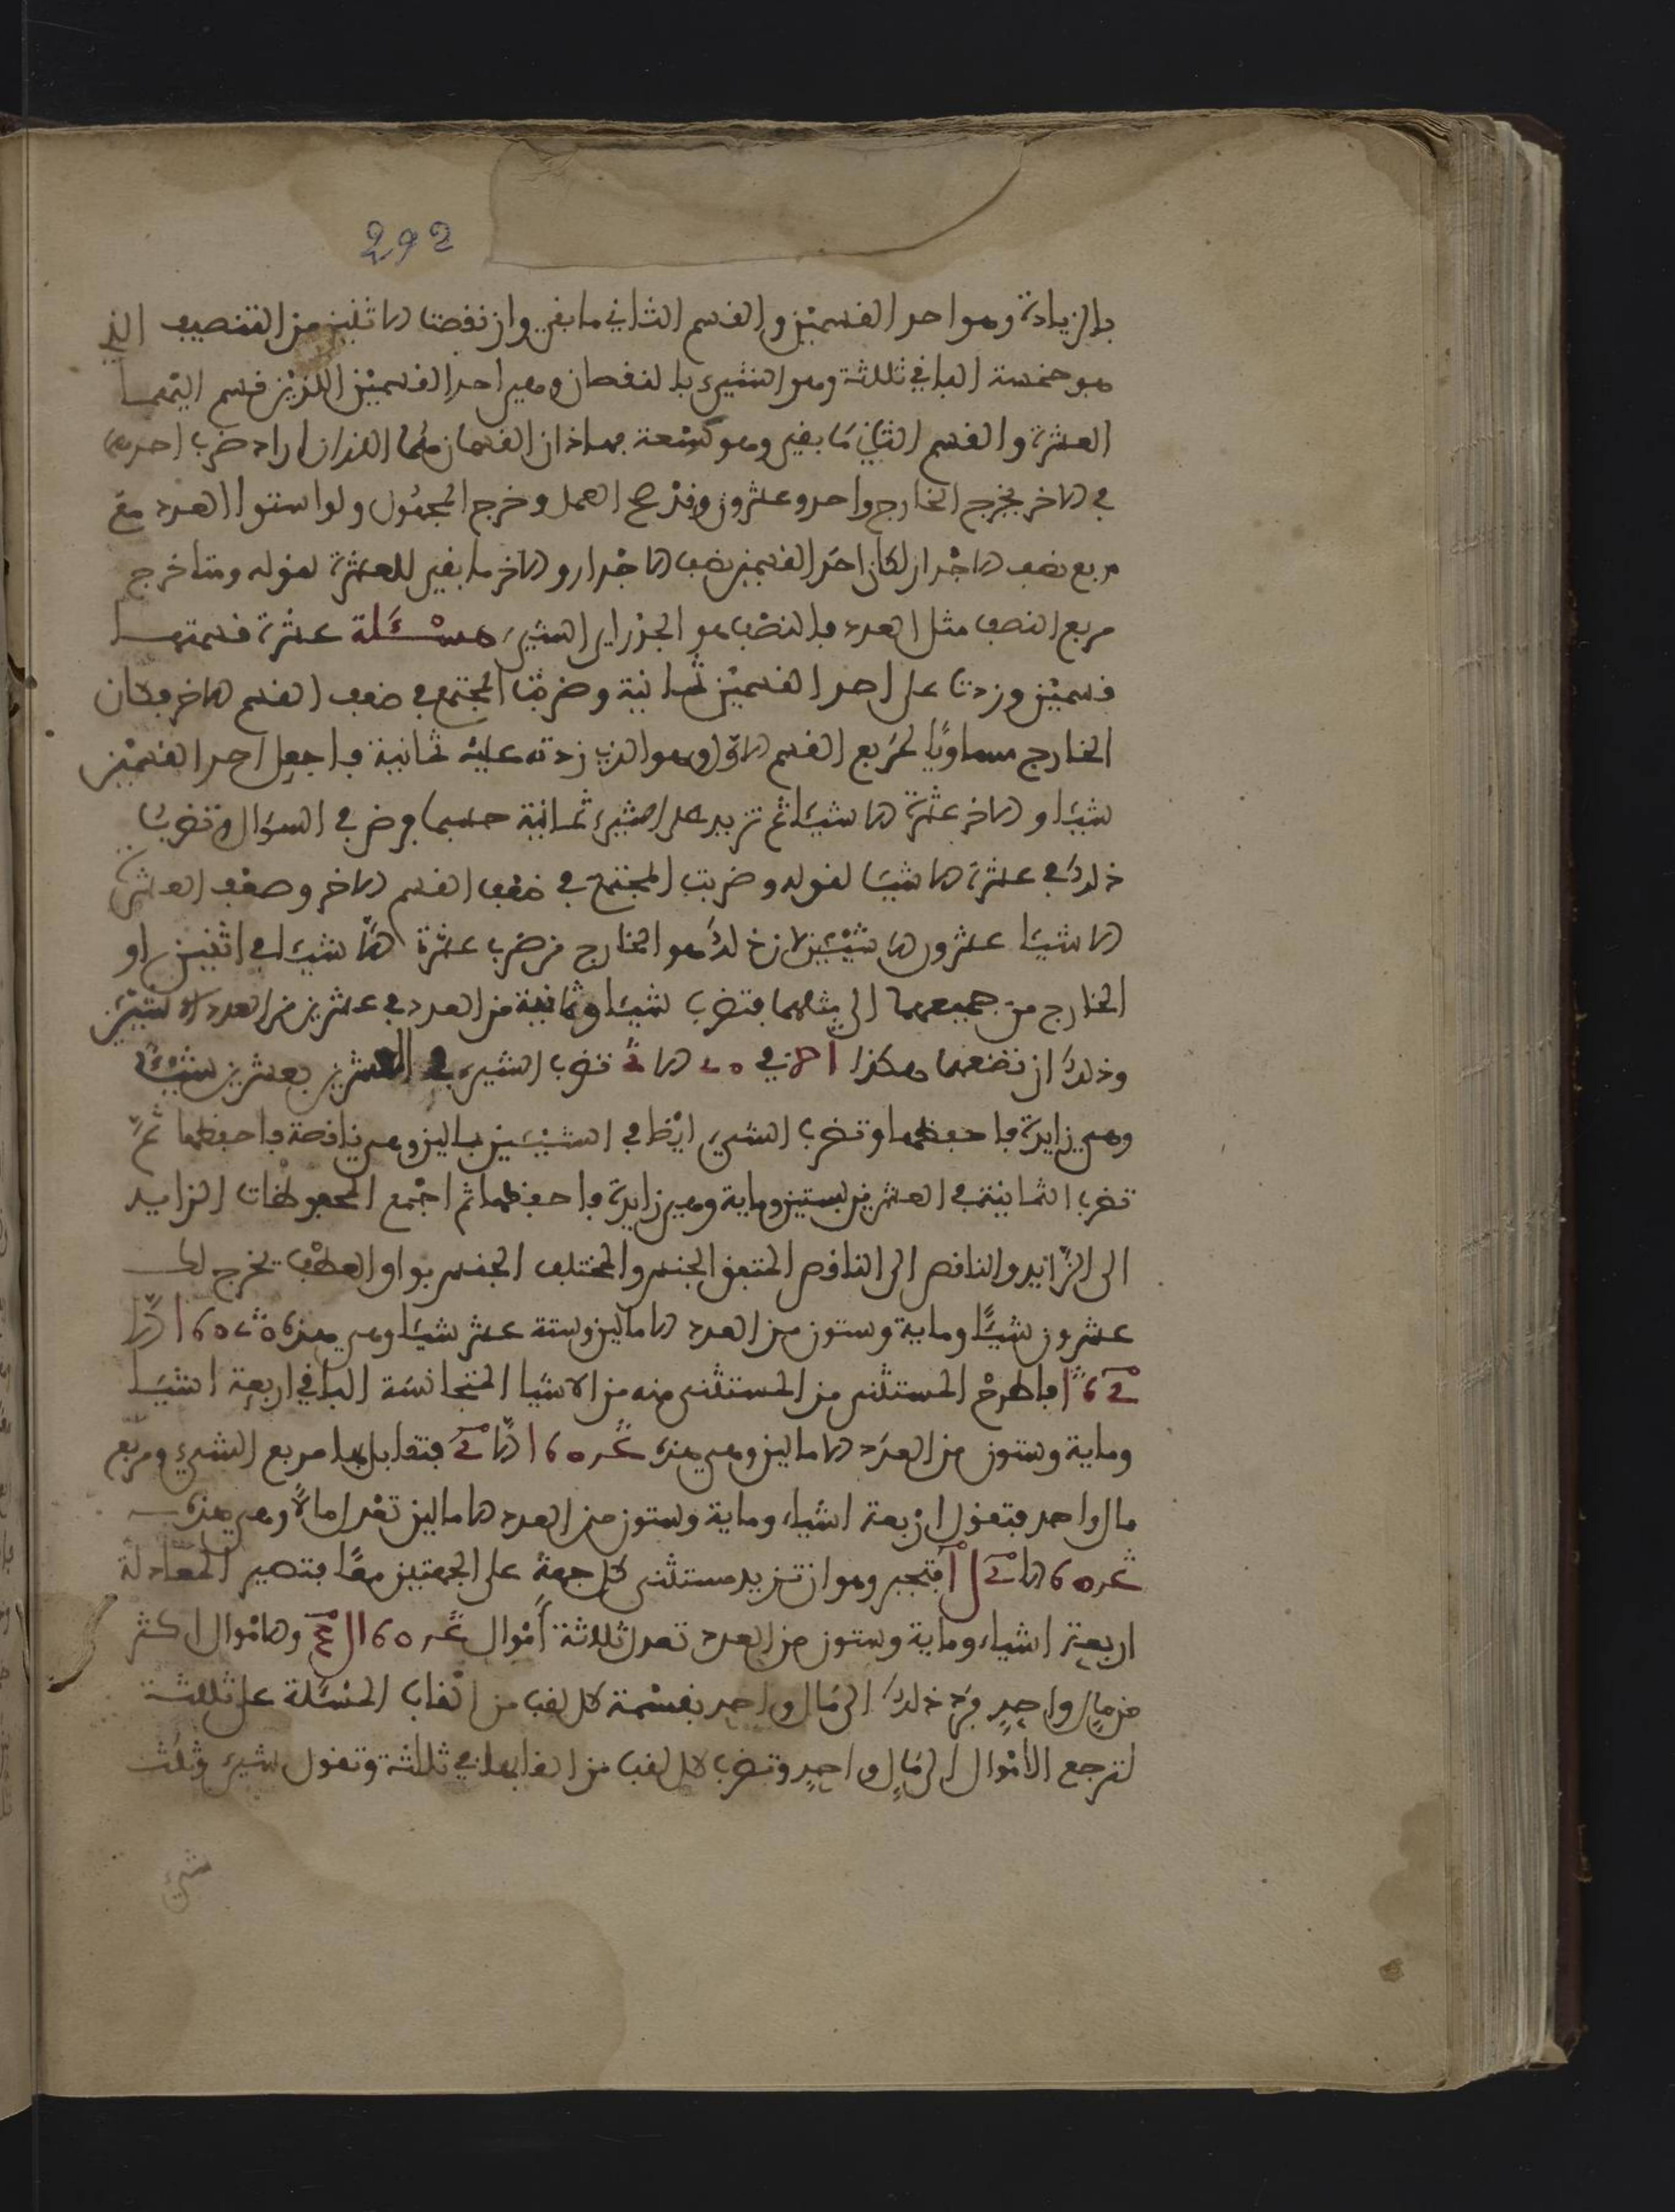 292
بالزيادة وهو احد القسمين والقسم الثاني ما بقي وان نقصتا الاثنين من التنصيف الذي
هو خمسة الباقي ثلثة وهو الشيء بالنقصان وهي احد القسمين اللذين قسم اليهما
العشرة والقسم الثاني ما بقي وهو سبعة فهاذان القسمان هما اللذان اراد ضرب احدهما
في الاخر يخرج الخارج واحد وعشرون وقد صح العمل وخرج المجهول ولو استوا العدد مع
مربع نصف الاجدار لكان احد القسمين نصف الاجدار والاخر ما بقي للعشرة لقوله ومتا خرج
مربع النصف مثل العدد فالنصف هو الجذر اي الشيء مسئلة عشرة قسمتها
قسمين وزدتا على احد القسمين ثمانية وضربتا المجتمع في ضعف القسم الاخر فكان
الخارج مساويًا لمربع القسم الاول وهو الذي زدته عليه ثمانية فاجعل احد القسمين
شيئا والاخر عشرة الا شيئا ثم تزيد على الشيء ثمانية حسبما فرض في السؤال وتضرب
ذلك في عشرة الا شيئا لقوله وضربت المجتمع في ضعف القسم الاخر وضعف العشرة
الا شيئا عشرون الا شيئين لان ذلك هو الخارج من ضرب عشرة الا شيئا في اثنين او
الخارج من جمعهما الى مثلهما فتضرب شيئا وثمانية من العدد في عشرين من العدد الا شيئين
وذلك ان تضعهما هكذا في 20 الا تضرب الشيء في العشرين بعشرين شيئا
وهي زايدة فاحفظها وتضرب الشيء ايضا في الشيئين بمالين وهي ناقصة فاحفظهما ثم
تضرب الثمانية في العشرين بستين وماية وهي زايدة فاحفظها ثم اجمع المحفوظات الزايد
الى الزّايد والناقص الى الناقص المتفق الجنس والمختلف الجنس بواو العطف يخرج لك
عشرون شيئًا وماية وستون من العدد الا مالين وستة عشر شيئا وهي هذه 20 160 الا
16 فاطرح المستثنى من المستثنى منه من الاشيا المتجانسة الباقي اربعة اشيا
وماية وستون من العدد الا مالين وهي هذه 160 الا فتقابل بها مربع الشيء ومربع
مال واحد فتقول اربعة اشياء وماية وستون من العدد الا مالين تعدل مالًا وهي هذه
160 الا فتجبر وهو ان تزيد مستثنى كل جهة على الجهتين معًا فتصير المعادلة
اربعة اشياء وماية وستون من العدد تعدل ثلاثة أموال 160 والاموال اكثر
من مالٍ واحدٍ فرد ذلك الى مال واحد بقسمة كل لقب من القاب المسئلة على ثلثة
لترجع الأموال الى مالٍ واحدٍ وتضرب كل لقب من القابها في ثلثة وتقول شيء وثلث
شيء